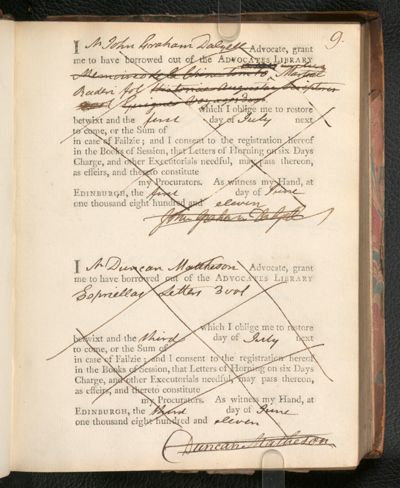 9.
I Mr John Graham Dalyell Advocate, grant
me to have borrowed out of the ADVOCATES LIBRARY
Memoires de la
fol
which I oblige me to restore
betwixt and the first day of July next
to come, or the Sum of
in case of Failzie; and I consent to the registration hereof
in the Books of Session, that Letters of Horning on six Days
Charge, and other Executorials needful, may pass thereon,
as effeirs, and thereto constitute
my Procurators. As witness my Hand, at
EDINBURGH, the first day of June
one thousand eight hundred and eleven
John Graham Dalyell
I Mr Duncan Mattheson Advocate, grant
me to have borrowed out of the ADVOCATES LIBRARY
Espriellas Letters 3 vol
which I oblige me to restore
betwixt and the third day of July next
to come, or the Sum of
in case of Failzie; and I consent to the registration hereof
in the Books of Session, that Letters of Horning on six Days
Charge, and other Executorials needful, may pass thereon,
as effeirs, and thereto constitute
my Procurators. As witness my Hand, at
EDINBURGH, the third day of June
one thousand eight hundred and eleven
Duncan Matheson